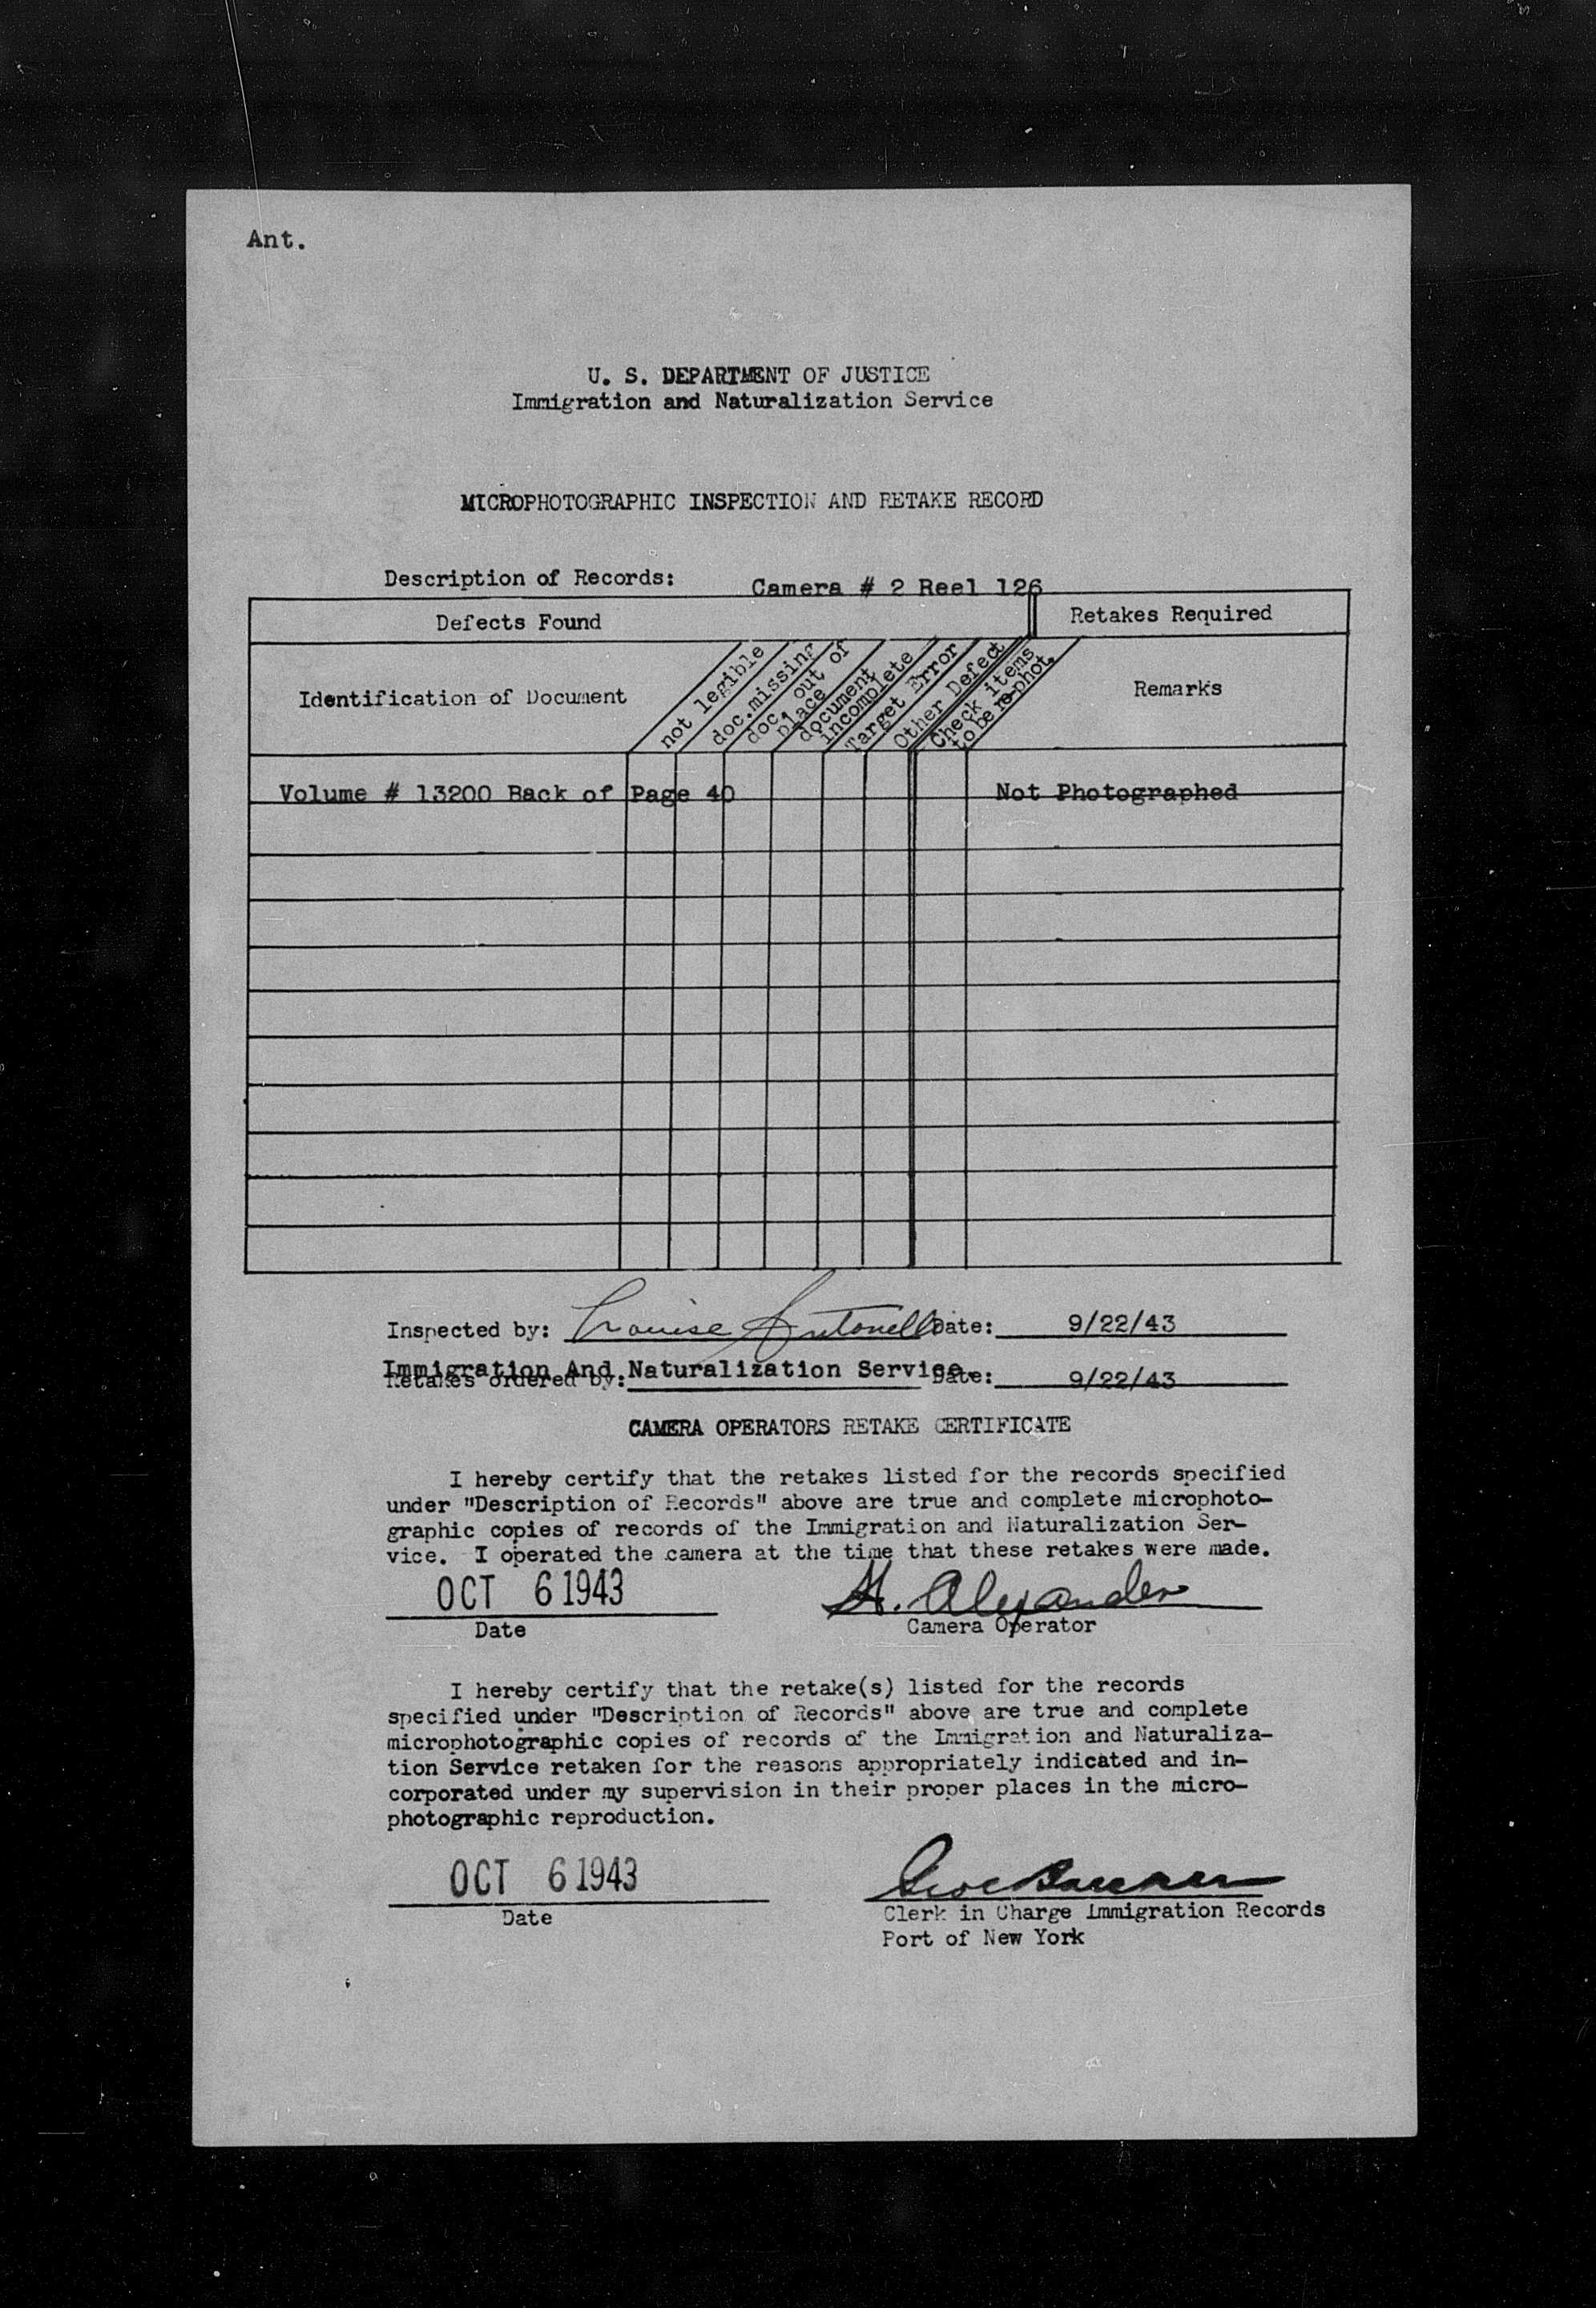 Ant.
U. S. DEPARTMENT OF JUSTICE
Immigration and Naturalization Service
MICROPHOTOGRAPHIC INSPECTION AND RETAKE RECORD
Description of Records: Camera # 2 Reel 126
Defects Found Retakes Required
Identification of Document
not legible
doc.missing
doc. out of
place
document
incomplete
Target Error
Other Defect
Check items
to be re-phot.
Remarks
Volume # 13200 Back of Page 40 Not Photographed
Inspected by: Louise Antonelli Date: 9/22/43
Immigration And Naturalization Service.
Retakes ordered by: Date: 9/22/43
CAMERA OPERATORS RETAKE CERTIFICATE
I hereby certify that the retakes listed for the records specified
under "Description of Records" above are true and complete microphoto-
graphic copies of records of the Immigration and Naturalization Ser-
vice. I operated the camera at the time that these retakes were made.
OCT 6 1943 H. Alexander
Date Camera Operator
I hereby certify that the retake(s) listed for the records
specified under "Description of Records" above are true and complete
microphotographic copies of records of the Immigration and Naturaliza-
tion Service retaken for the reasons appropriately indicated and in-
corporated under my supervision in their proper places in the micro-
photographic reproduction.
OCT 6 1943
Date Clerk in Charge Immigration Records
Port of New York